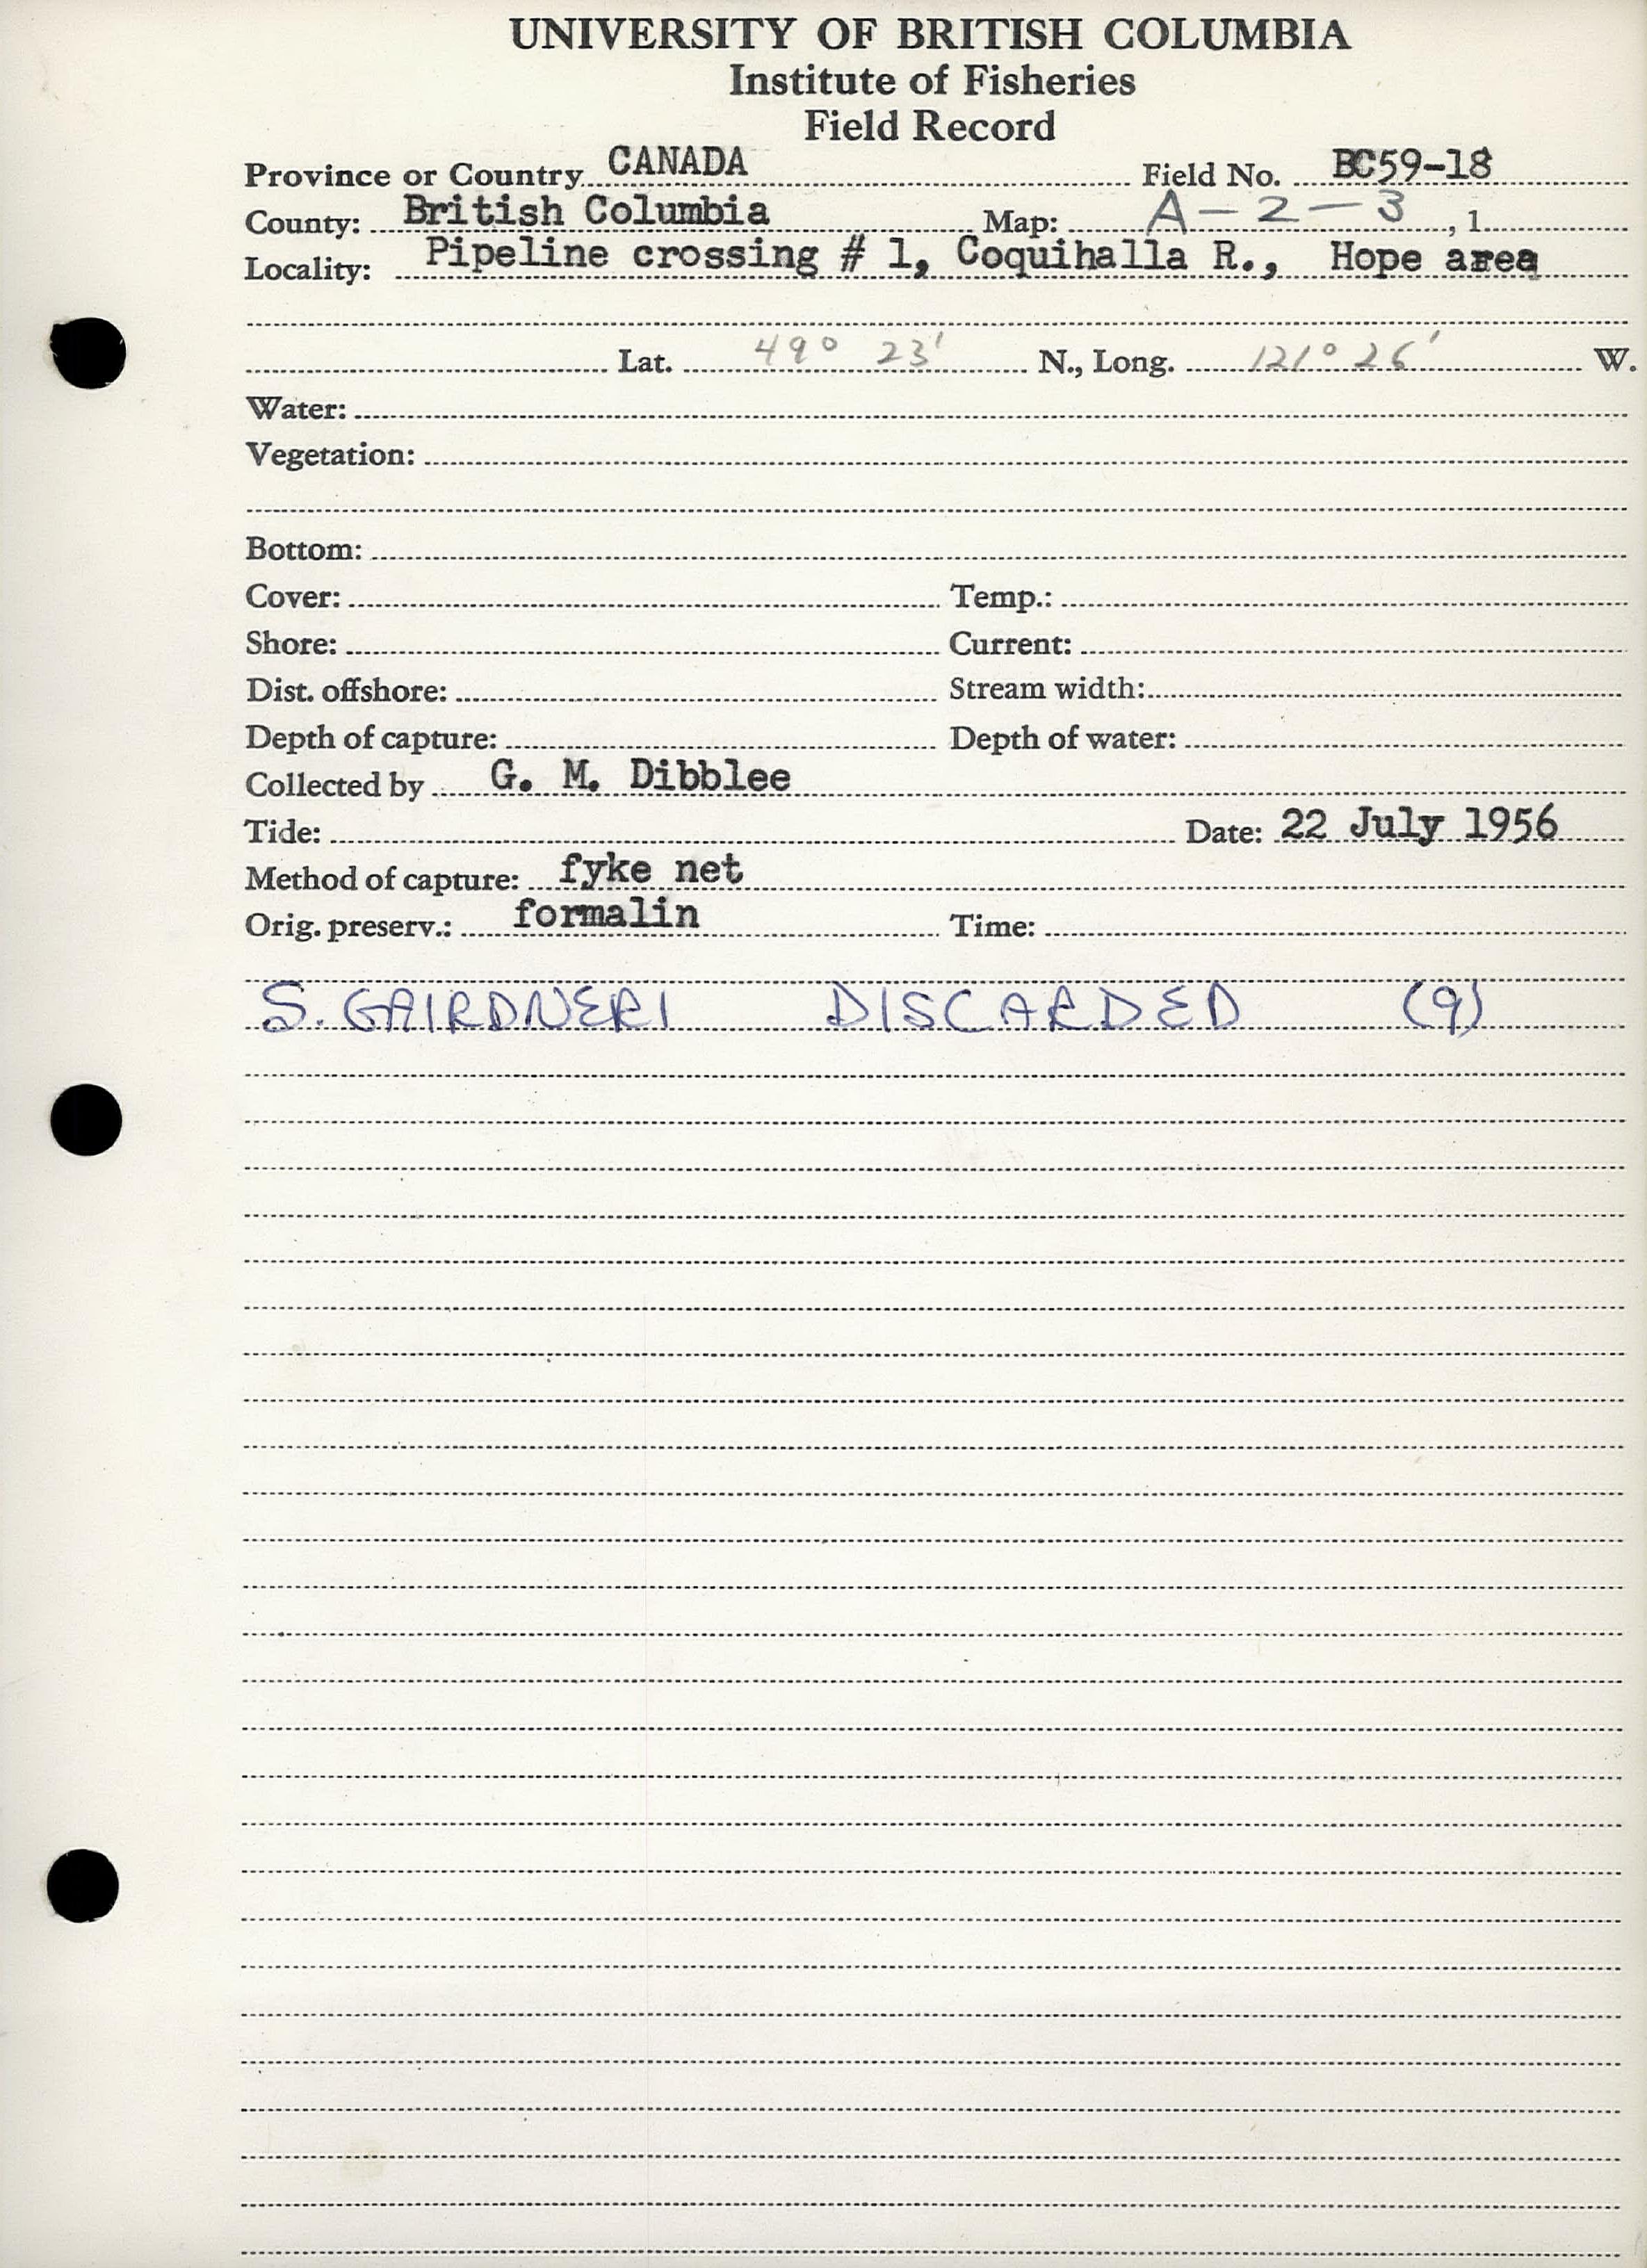 UNIVERSITY OF BRITISH COLUMBIA
Institute of Fisheries
Field Record
Province or Country CANADA Field No. BC59-18
County: British Columbia Map: A-2-3, 1
Locality: Pipeline crossing # 1, Coquihalla R., Hope area
Lat. 49° 23' N., Long. 121° 26' W.
Water:
Vegetation:
Bottom:
Cover: Temp.:
Shore: Current:
Dist. offshore: Stream width:
Depth of capture: Depth of water:
Collected by G. M. Dibblee
Tide: Date: 22 July 1956
Method of capture: fyke net
Orig. preserv.: formalin Time:
S. GAIRDNERI DISCARDED (9)